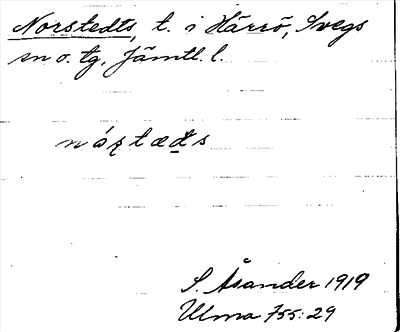 Norstedts, t. i Härrö, Svegs
sn o. tg, Jämtl. l.
náʂtæds
S. Åsander 1919
Ulma 755:29